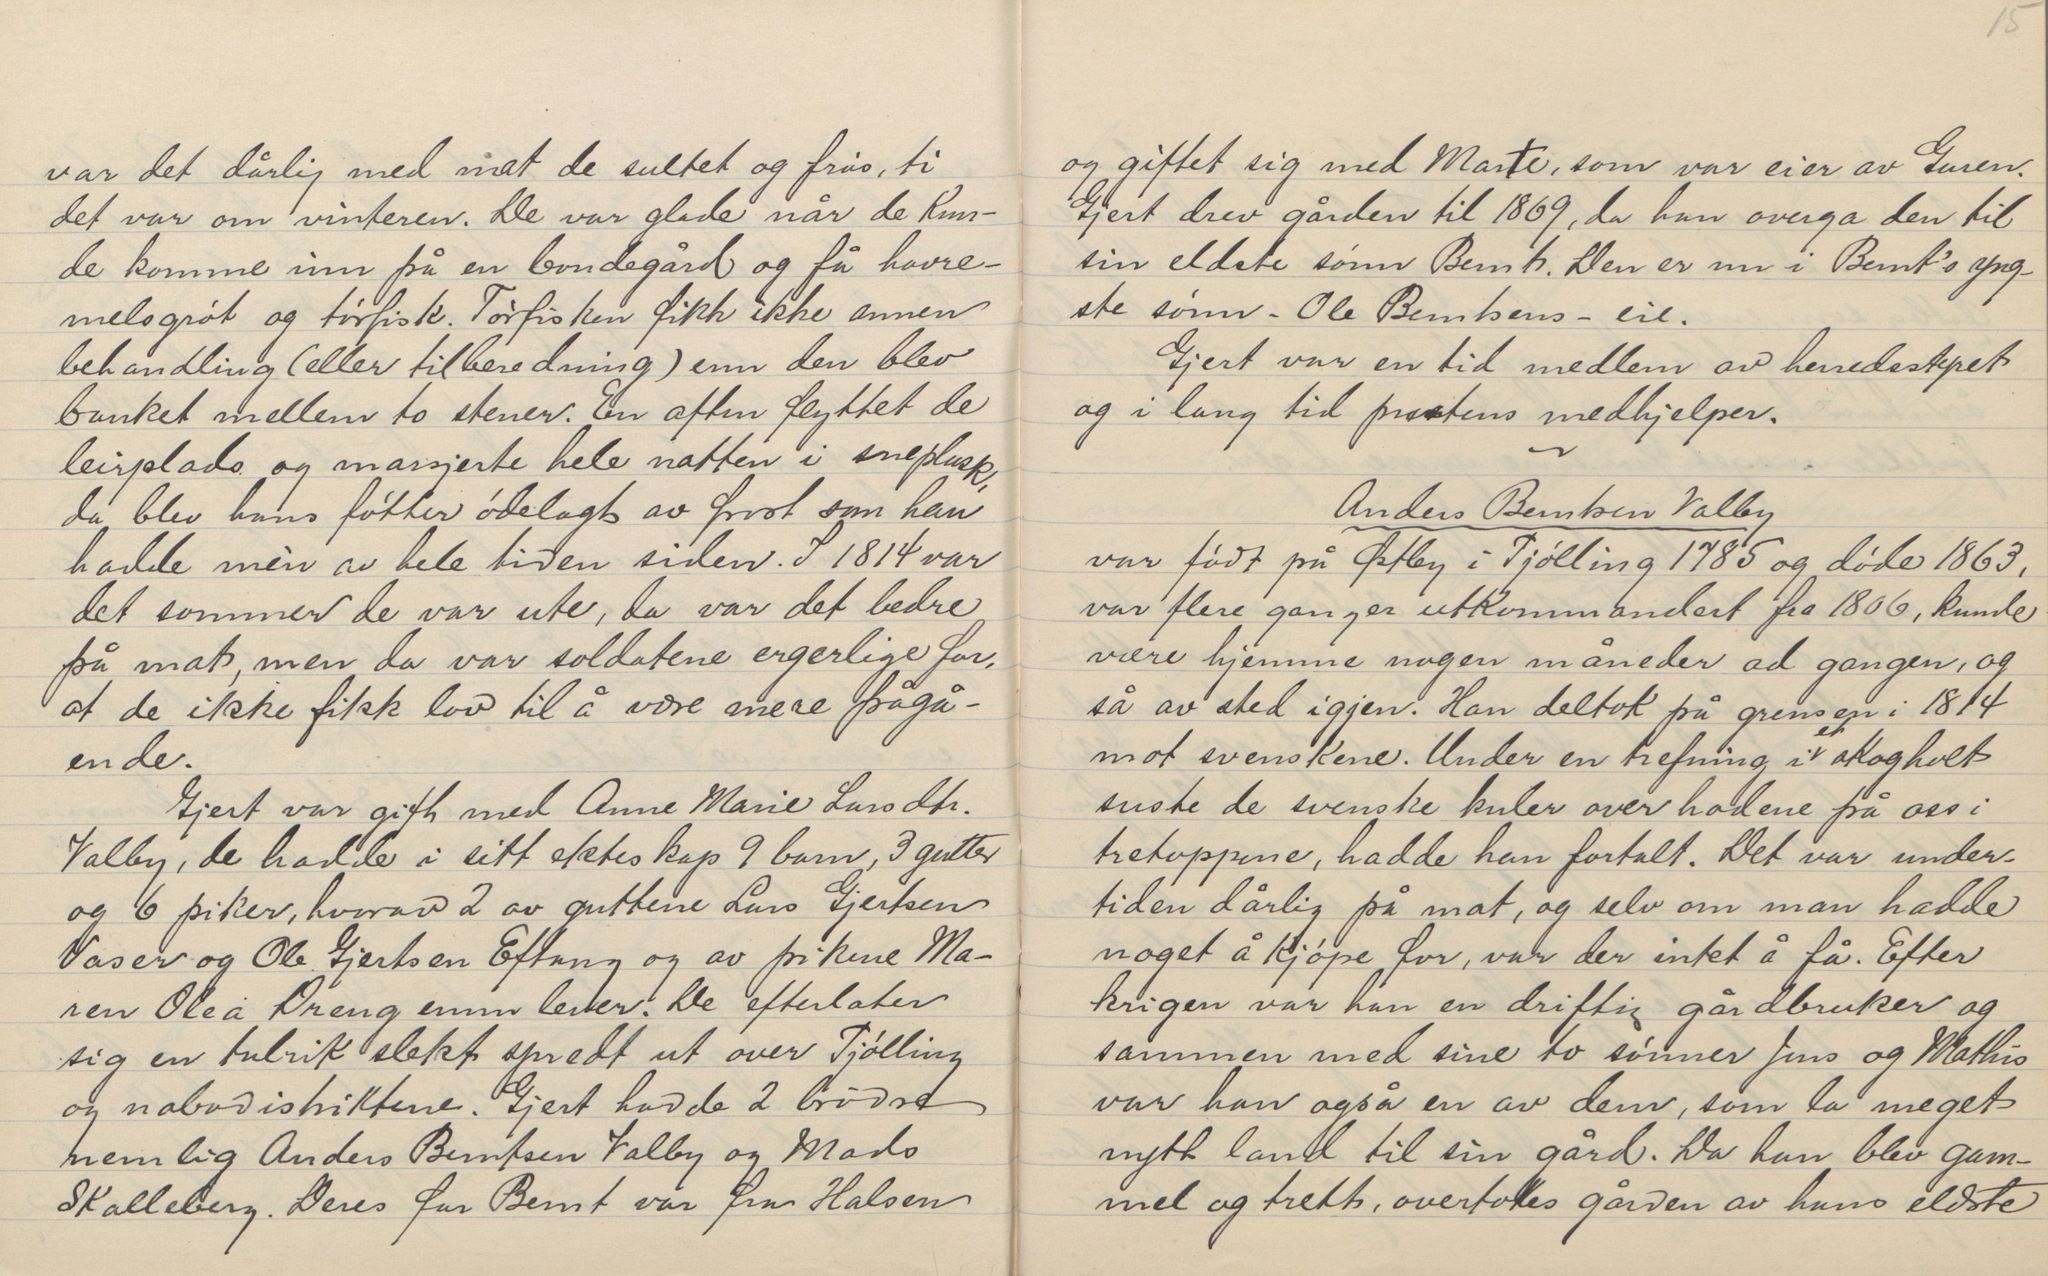 var det dårlig med mat de sultet og frøs, ti
det var om vinteren. De var glade når de kun-
de komme inn på en bondegård og få havre-
melsgrøt og tørfisk. Tørfisken fikk ikke annen
behandling (eller tilberedning) enn den blev
banket mellem to stener. En aften flyttet de
leirplads og marsjerte hele natten i sneplask,
da blev hans føtter ødelagt av frost som han
hadde mèn av hele tiden siden. I 1814 var
det sommer de var ute, da var det bedre
på mat, men da var soldatene ergerlige for,
at de ikke fikk lov til å være mere pågå-
ende.
Gjert var gift med Anne Marie Larsdtr.
Valby, de hadde i sitt ekteskap 9 barn, 3 gutter
og 6 piker, hvorav 2 av guttene Lars Gjertsen
Vaser og Ole Gjertsen Eftang og av pikene Ma-
ren Olea Dreng ennu lever. De efterlater
sig en talrik slekt spredt ut over Tjølling
og nabodistriktene. Gjert hadde 2 brødre
nemlig Anders Berntsen Valby og Mads
Skalleberg. Deres far Bernt var fra Halsen
15
og giftet sig med Marte, som var eier av Guren.
Gjert drev gården til 1869, da han overga den til
sin eldste sønn Bernt. Den er nu i Bernt's yng-
ste sønn - Ole Berntsens - eie.
Gjert var en tid medlem av herredsstyret
og i lang tid prestens medhjelper.
Anders Berntsen Valby
var født på Østby i Tjølling 1785 og døde 1863,
var flere ganger utkommandert fra 1806, kunde
være hjemme nogen måneder ad gangen, og
så av sted igjen. Han deltok på grensen i 1814
mot svenskene. Under en trefning i et skogholt
suste de svenske kuler over hodene på oss i
tretoppene, hadde han fortalt. Det var under-
tiden dårlig på mat, og selv om man hadde
noget å kjøpe for, var der intet å få. Efter
krigen var han en driftig gårdbruker og
sammen med sine to sønner Jens og Mathis
var han også en av dem, som la meget
nytt land til sin gård. Da han blev gam-
mel og trett, overtokes gården av hans eldste